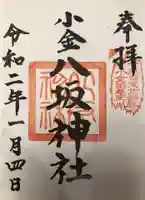 奉拝
小金八坂神社
令和二年一月四日